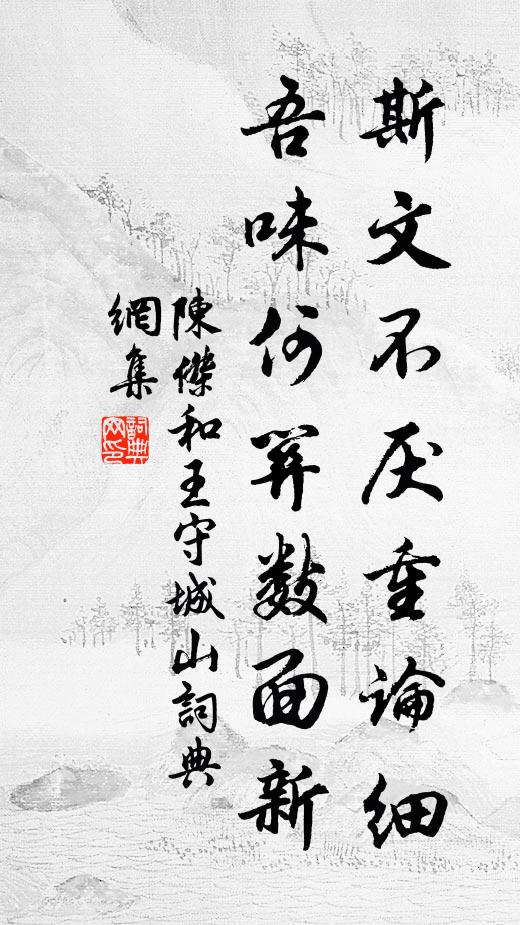 斯文不厌重論細
吾味何筭數面新
陳傑和王守城山詞典
網集
詞典网印